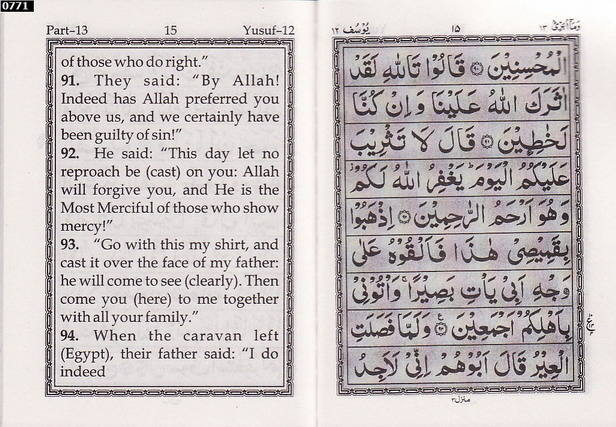 0771
Part–13 15 Yusuf–12
of those who do right.”
91. They said: “By Allah!
Indeed has Allah preferred you
above us, and we certainly have
been guilty of sin!”
92. He said: “This day let no
reproach be (cast) on you: Allah
will forgive you, and He is the
Most Merciful of those who show
mercy!”
93. “Go with this my shirt, and
cast it over the face of my father:
he will come to see (clearly). Then
come you (here) to me together
with all your family.”
94. When the caravan left
(Egypt), their father said: “I do
indeed
وَمَآ اُبَرِّئُ ١٣ ١٥ يُوْسُف ١٢
الْمُحْسِنِيْنَ ۝٩٠ قَالُوْا تَاللّٰهِ لَقَدْ
اٰثَرَكَ اللّٰهُ عَلَيْنَا وَ اِنْ كُنَّا
لَخٰطِـِٕيْنَ ۝٩١ قَالَ لَا تَثْرِيْبَ
عَلَيْكُمُ الْيَوْمَ ؕ يَغْفِرُ اللّٰهُ لَكُمْ ؗ
وَهُوَ اَرْحَمُ الرّٰحِمِيْنَ ۝٩٢ اِذْهَبُوْا
بِقَمِيْصِيْ هٰذَا فَاَلْقُوْهُ عَلٰى
وَجْهِ اَبِيْ يَاْتِ بَصِيْرًا ۚ وَاْتُوْنِيْ
بِاَهْلِكُمْ اَجْمَعِيْنَ ۝٩٣ وَلَمَّا فَصَلَتِ
الْعِيْرُ قَالَ اَبُوْهُمْ اِنِّيْ لَاَجِدُ
منزل ٣